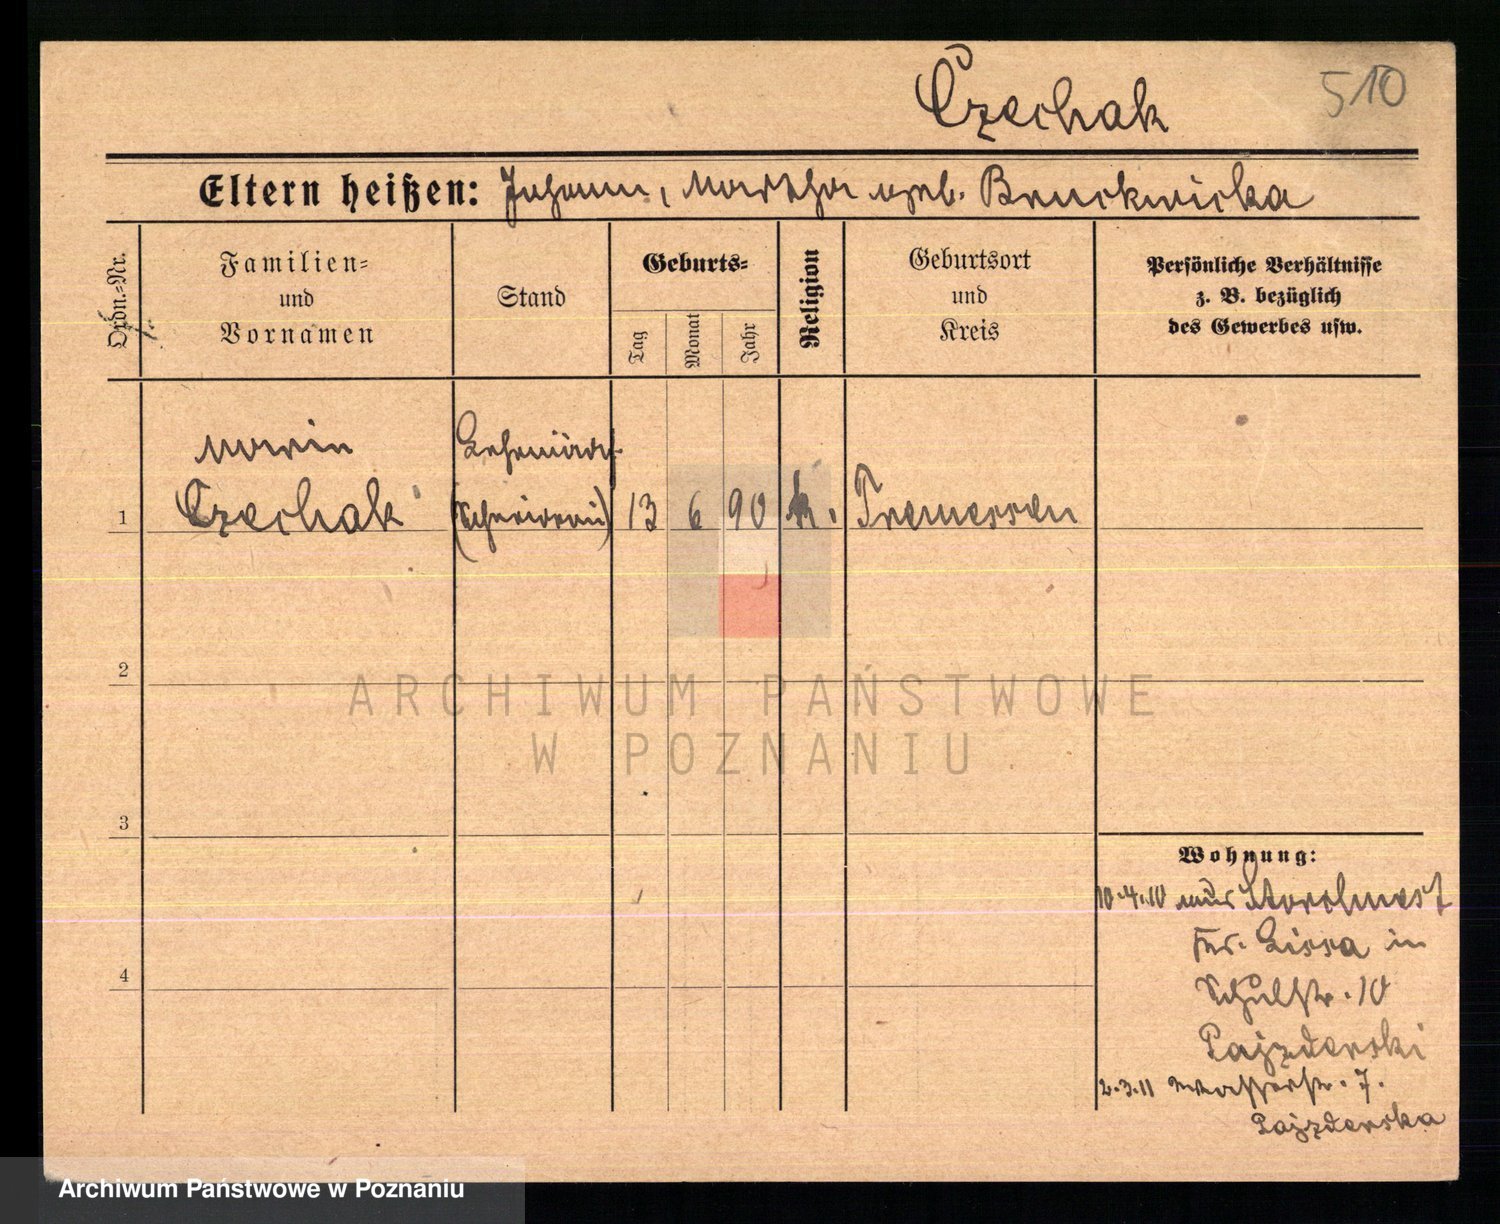 Czechak
510
Eltern heißen: Johann, Martha geb. Bruckwicka
Ordn.-Nr.
Familien-
und
Vornamen
Stand
Geburts-
Tag
Monat
Jahr
Religion
Geburtsort
und
Kreis
Persönliche Verhältnisse
z. B. bezüglich
des Gewerbes usw.
Marie
Czechak
(Schneiderei)
1
13
6
90
k.
Tremessen
2
3
4
Wohnung:
10.4.10 aus Storchnest
Kr. Lissa in
Schulstr. 10
Pajzderski
2.3.11 Wasserstr. 7.
Pajzderska
ARCHIWUM PAŃSTWOWE
W POZNANIU
Archiwum Państwowe w Poznaniu